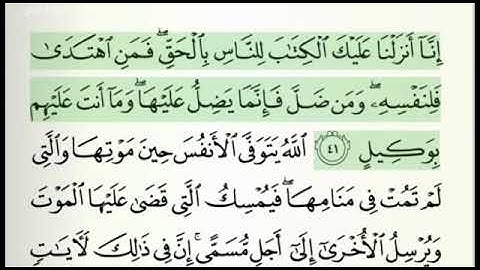 إِنَّآ أَنزَلْنَا عَلَيْكَ ٱلْكِتَٰبَ لِلنَّاسِ بِٱلْحَقِّ ۖ فَمَنِ ٱهْتَدَىٰ
فَلِنَفْسِهِۦ ۖ وَمَن ضَلَّ فَإِنَّمَا يَضِلُّ عَلَيْهَا ۖ وَمَآ أَنتَ عَلَيْهِم
بِوَكِيلٍ ٤١ ٱللَّهُ يَتَوَفَّى ٱلْأَنفُسَ حِينَ مَوْتِهَا وَٱلَّتِى
لَمْ تَمُتْ فِى مَنَامِهَا ۖ فَيُمْسِكُ ٱلَّتِى قَضَىٰ عَلَيْهَا ٱلْمَوْتَ
وَيُرْسِلُ ٱلْأُخْرَىٰٓ إِلَىٰٓ أَجَلٍ مُّسَمًّى ۚ إِنَّ فِى ذَٰلِكَ لَءَايَٰتٍ